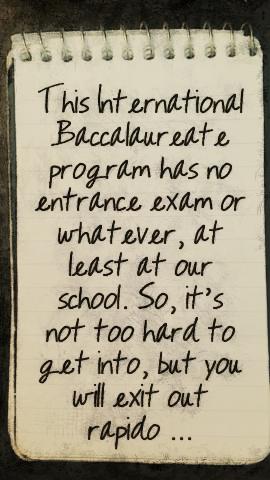 This International
Baccalaureate
program has no
entrance exam or
whatever, at
least at our
school. So, it's
not too hard to
get into, but you
will exit out
rapido ...